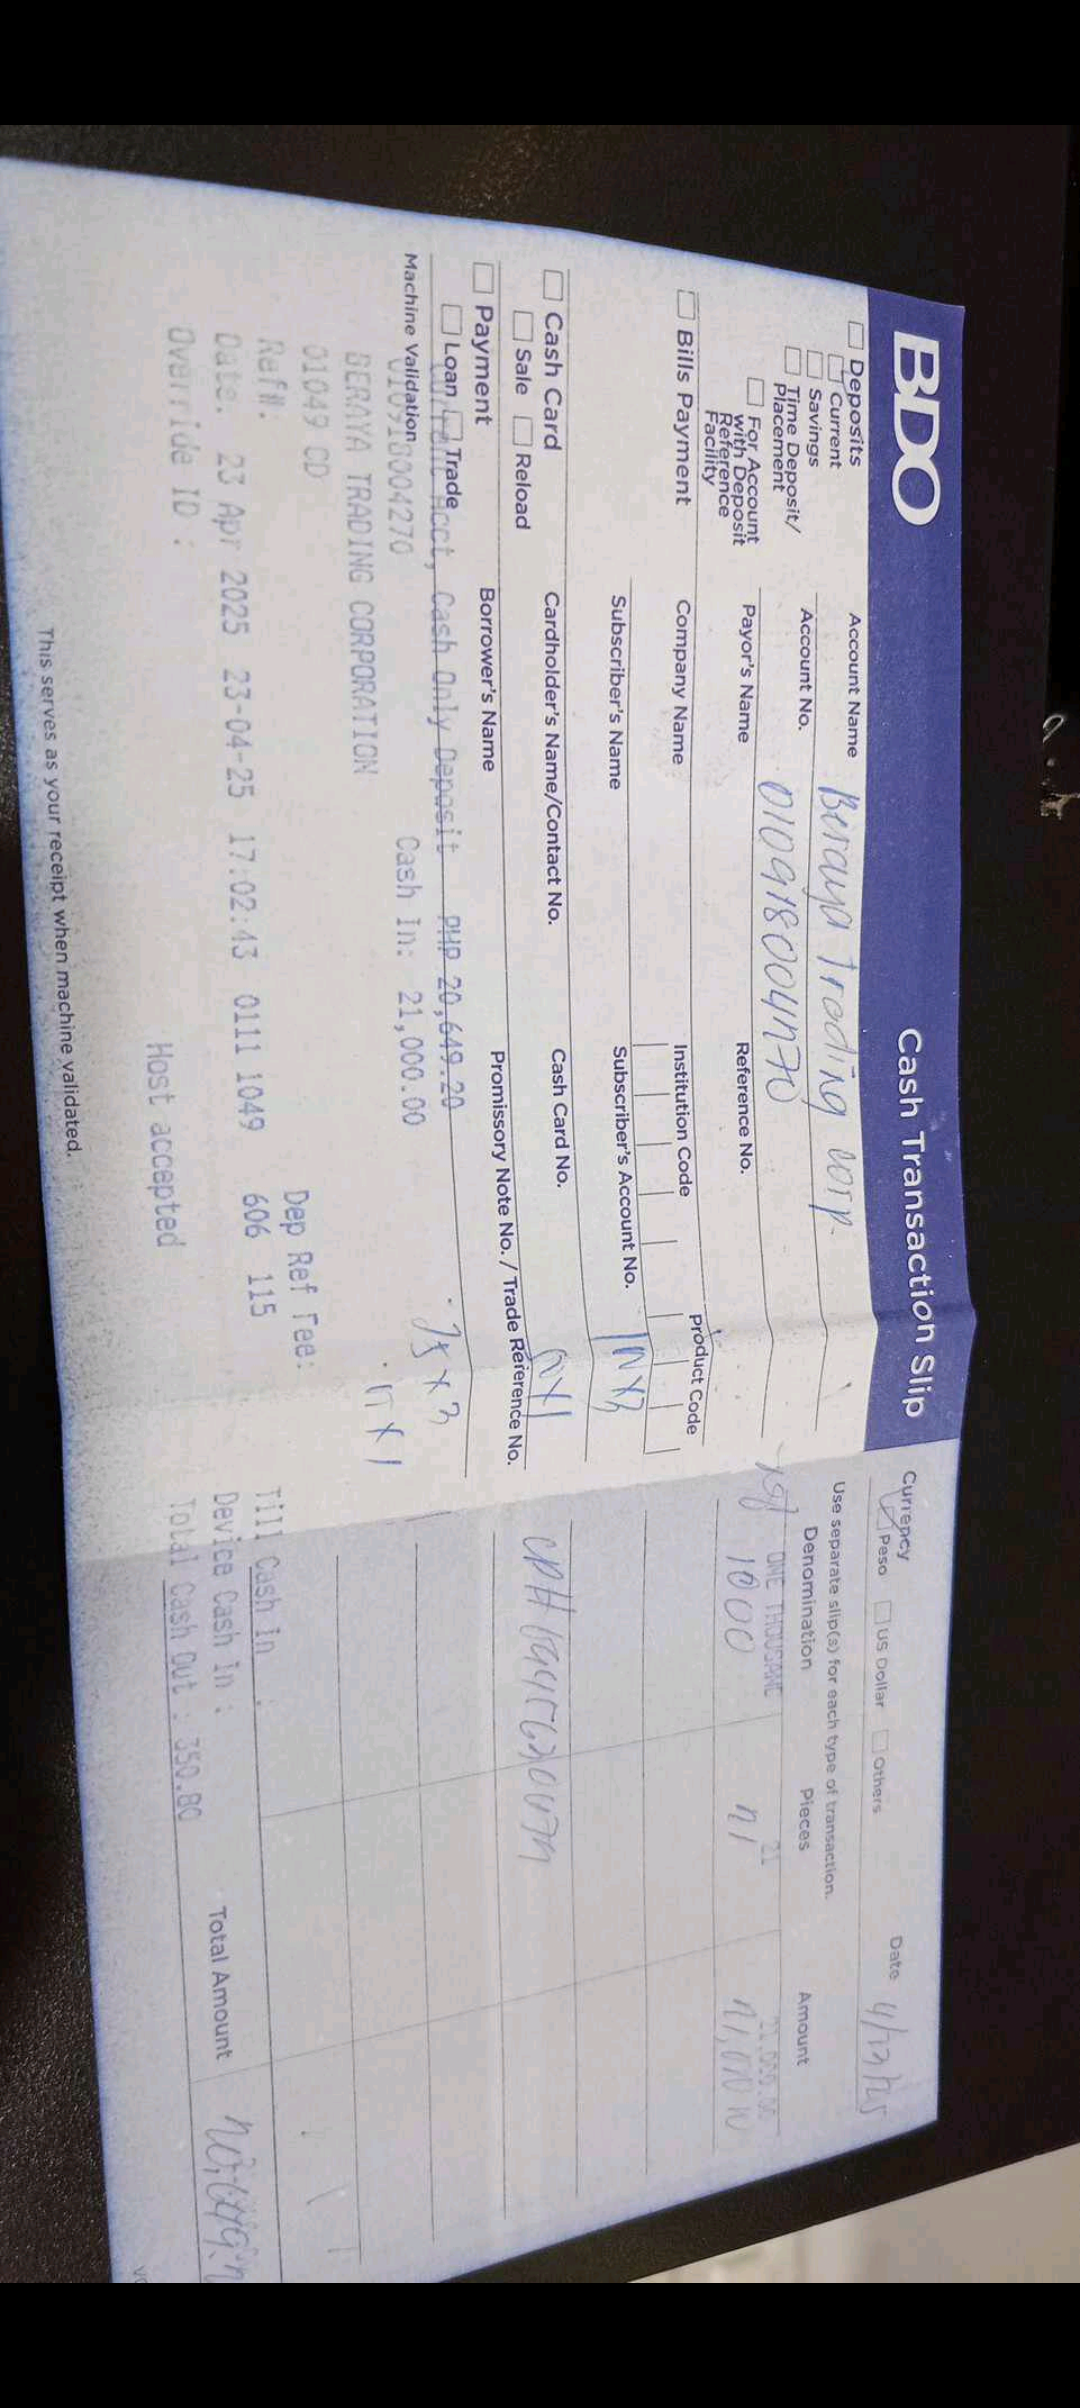 BDO
Cash Transaction Slip
Currency
Peso US Dollar Others
Date 4/23/25
Use separate slip(s) for each type of transaction.
Denomination Pieces Amount
ONE THOUSAND 21 21,000.00
1000 21
Deposits
Current
Savings
Time Deposit/
Placement
For Account
with Deposit
Reference
Facility
Account Name Beraya Trading Corp.
Account No. 010918004270
Payor's Name
Reference No.
Bills Payment
Company Name
Institution Code
Product Code
Subscriber's Name
Subscriber's Account No.
Cash Card
Sale Reload
Cardholder's Name/Contact No.
Cash Card No.
Payment
Loan Trade
Borrower's Name
Promissory Note No. / Trade Reference No.
Machine Validation
Current Acct, Cash Only Deposit PHP 20,649.20
010918004270 Cash In: 21,000.00
BERAYA TRADING CORPORATION
01049 CD Dep Ref Fee:
Ref#:
Date. 23 Apr 2025 23-04-25 17:02:43 0111 1049 606 115
Override ID : Host accepted
Till Cash in :
Device Cash in :
Total Cash Out : 350.80
Total Amount 20,649.20
This serves as your receipt when machine validated.